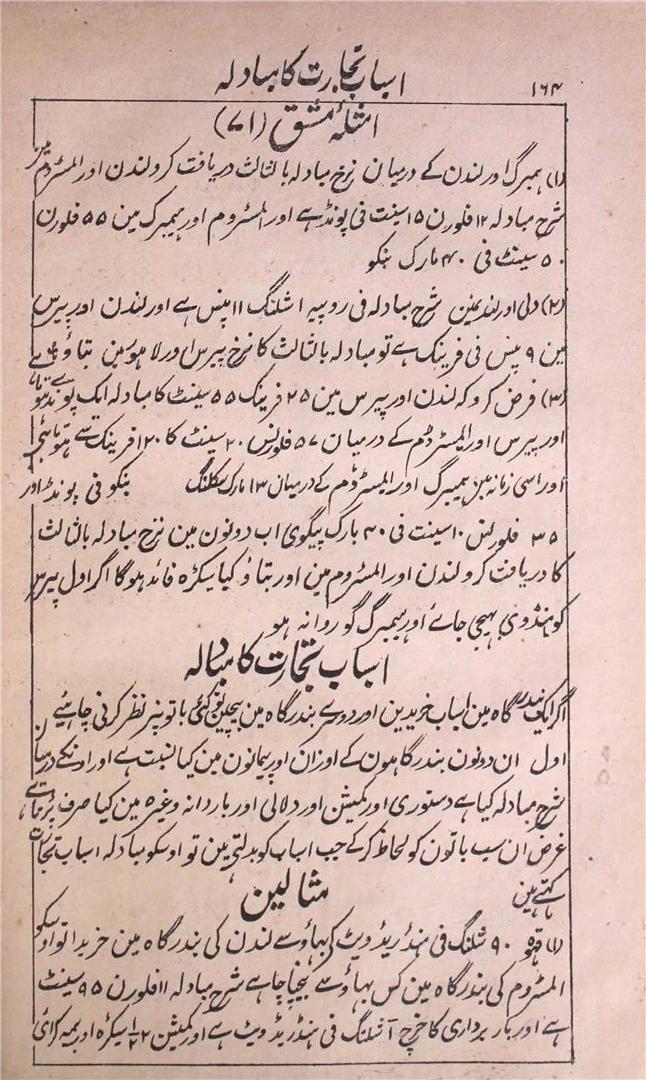 ۱۶۴ اسباب تجارت کا مبادلہ
امثلۂ مشق (۷۱)
(۱) ہمبرگ اور لندن کے درمیان نرخ مبادلہ بالثالث دریافت کرو لندن اور المسٹروم مین
شرح مبادلہ ۱۲ فلورن ۱۵ سینت فی پونڈ ہے اور المسٹروم اور ہیمبرک مین ۵۵ فلورن
۵۰ سینٹ فی ۴۰ مارک بنکو
(۲) دلی اور لندنمین شرح مبادلہ فی روپیہ ۱ شلنگ ۱۱ پنس ہے اور لندن اور پیرس
مین ۹ پنس فی فرینک ہے تو مبادلہ بالثالث کا نرخ پیرس اور لاہور مین بتاؤ
(۳) فرض کرو کہ لندن اور پیرس مین ۲۵ فرینک ۵۵ سینٹ کا مبادلہ ایک پونڈ سے ہوتا ہے
اور پیرس اور المیسٹرڈم کے درمیان ۵۷ فلورنس ۲۰ سینٹ کا ۱۲۰ فرینک سے ہوتا ہے
اور اسی زمانہ مین ہیمبرگ اور المیسٹروم کے درمیان ۱۳ مارک شلنگ بنکو فی پونڈ اور
۳۵ فلورنس ۱۰ سینت فی ۴۰ مارک بیگو ہی اب دونون مین نرخ مبادلہ بالثالث
کا دریافت کرو لندن اور المسٹروم مین اور بتاؤ کیا سیکڑہ فائدہوگا اگر اول پیرس
کو ہنڈوی بھیجی جاے اور ہیمبرگ گو روانہ ہو
اسباب تجارت کا مبادلہ
اگر ایک بندرگاہ مین اسباب خریدین اور دوسرے بندرگاہ مین بیچین تو کئی باتونپر نظر کرنی چاہئیے
اول ان دونون بندرگاہون کے اوزان اور پیمانون مین کیا نسبت ہے اور اونکے درمیان
شرح مبادلہ کیا ہے دستوری اور کمیشن اور دلالی اور باردانہ وغیرہ مین کیا صرف پڑتا ہے
غرض ان سب باتون کو لحاظ کرکے جب اسباب کو بدلتے ہین تو اوسکو مبادلہ اسباب تجارت
کہتے ہین
مثالین
(۱) قہوہ ۹۰ شلنگ فی ہنڈریڈ ویٹ کی بھاؤ سے لندن کی بندرگاہ مین خریدا تو اوسکو
المسٹروم کی بندرگاہ مین کس بھاؤ سے بیچنا چاہے شرح مبادلہ ۱۱ فلورن ۹۵ سینٹ
ہے اور بار برداری کا خرچ آشلنگ فی ہنڈریڈ ویٹ ہے اور کمیشن ۲ ۱/۲ سیکڑہ اور بیمہ کرائی